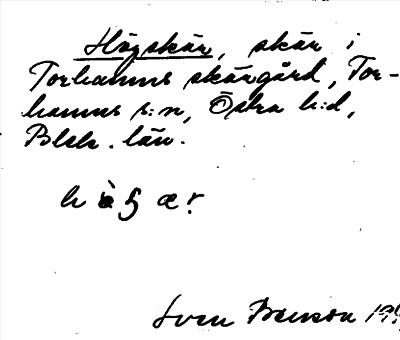 Högskär, skär i
Torhamns skärgård, Tor-
hamns s:n, Östra h:d,
Blek. län.
Sven Benson